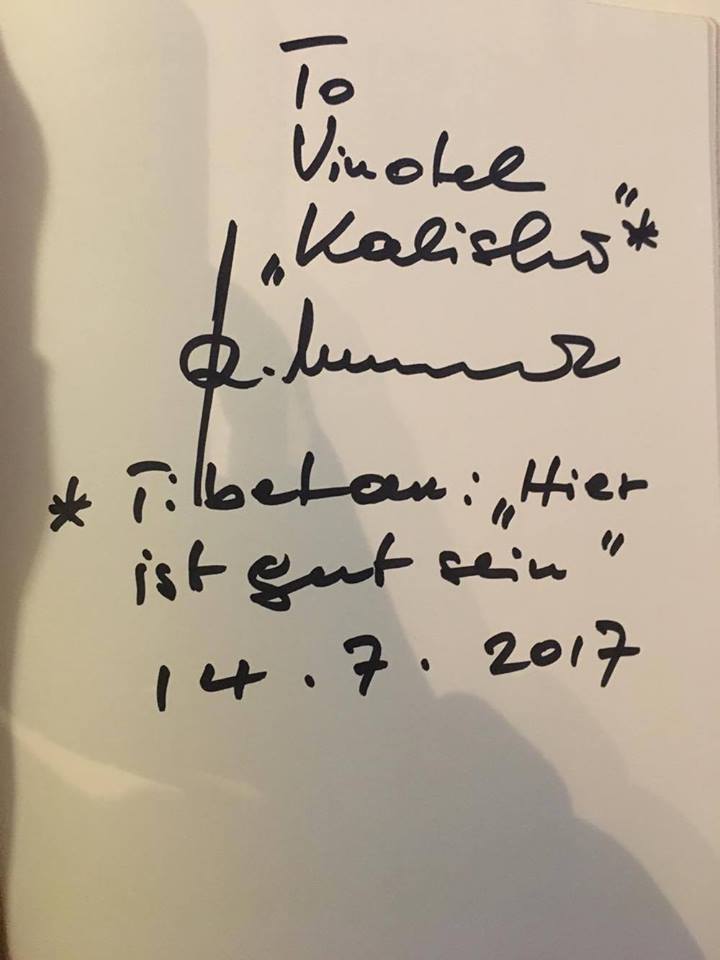 To
Vinotel
„Kalishö"*
* Tibetan: „Hier
ist gut sein"
14.7.2017